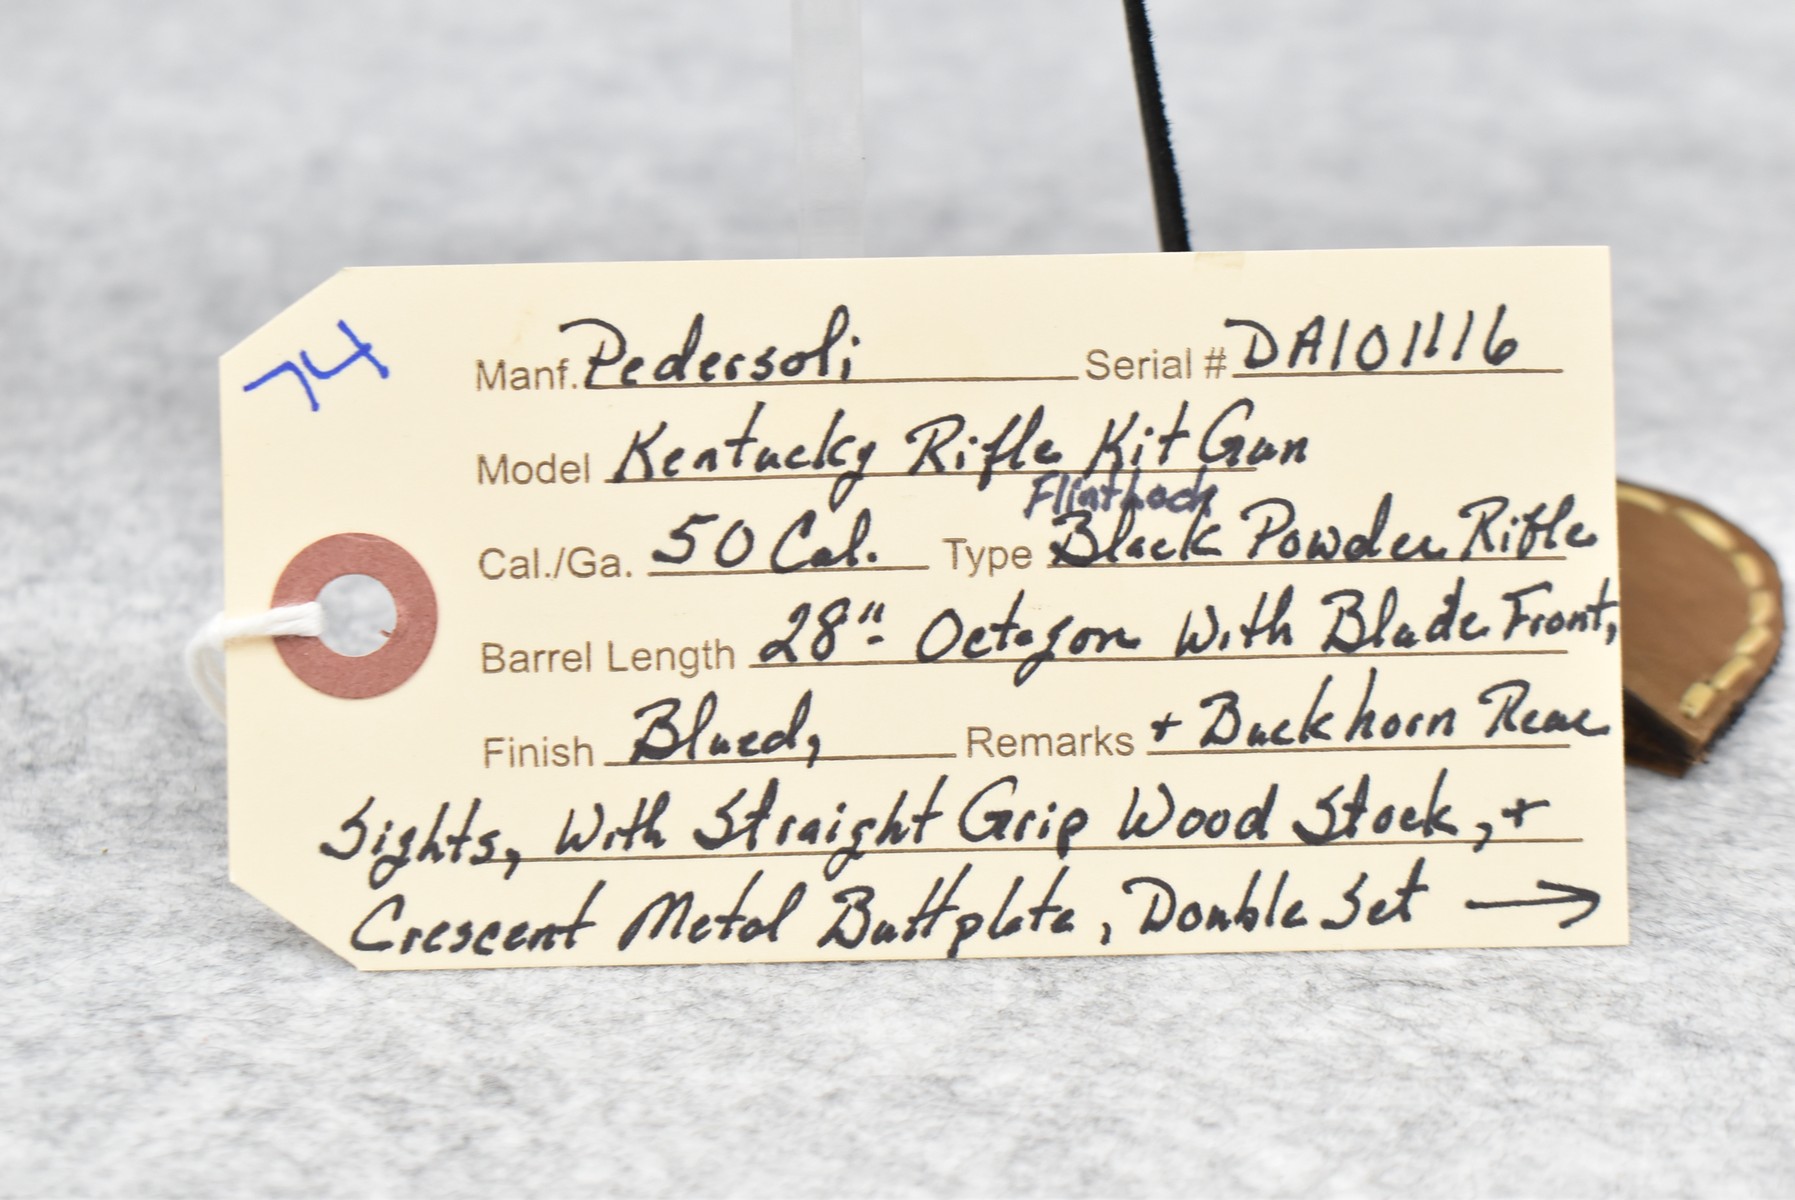 74
Manf. Pedersoli Serial # DA101116
Model Kentucky Rifle Kit Gun
Flintlock
Cal./Ga. 50 Cal. Type Black Powder Rifle
Barrel Length 28" Octagon With Blade Front,
Finish Blued, Remarks + Buckhorn Rear
Sights, With Straight Grip Wood Stock, +
Crescent Metal Buttplate, Double Set →